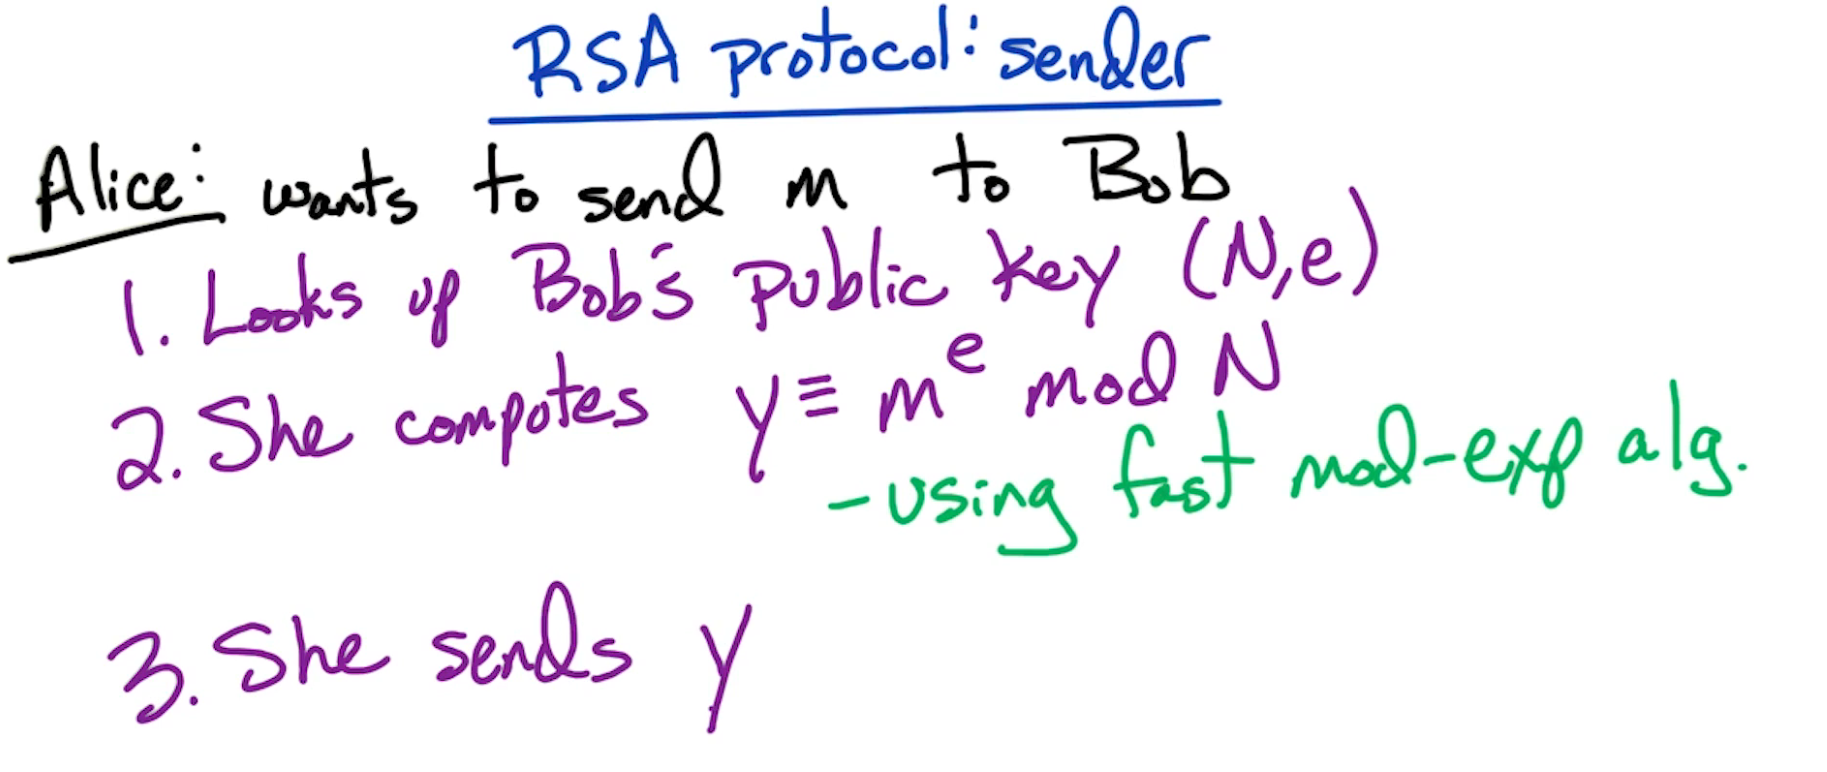 RSA protocol: sender
Alice: wants to send m to Bob
1. Looks up Bob's public key (N,e)
2. She computes y ≡ m^e mod N
- using fast mod-exp alg.
3. She sends y